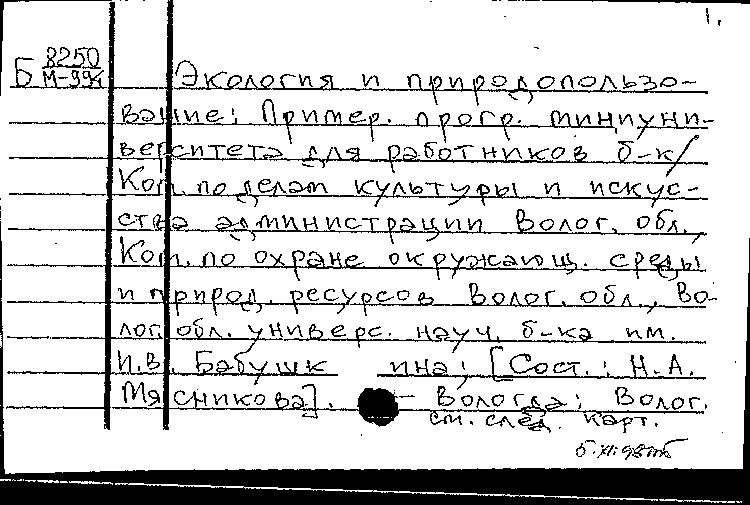 1.
Б 8250
М-994
Экология и природопользо-
вание: Пример. прогр. миниуни-
верситета для работников б-к/
Ком. по делам культуры и искус-
ства администрации Волог. обл.,
Ком. по охране окружающ. среды
и природ. ресурсов Волог. обл., Во-
лог. обл. универс. науч. б-ка им.
И.В. Бабушкина; [Сост.: Н.А.
Мясникова]. - Вологда; Волог.
см. след. карт.